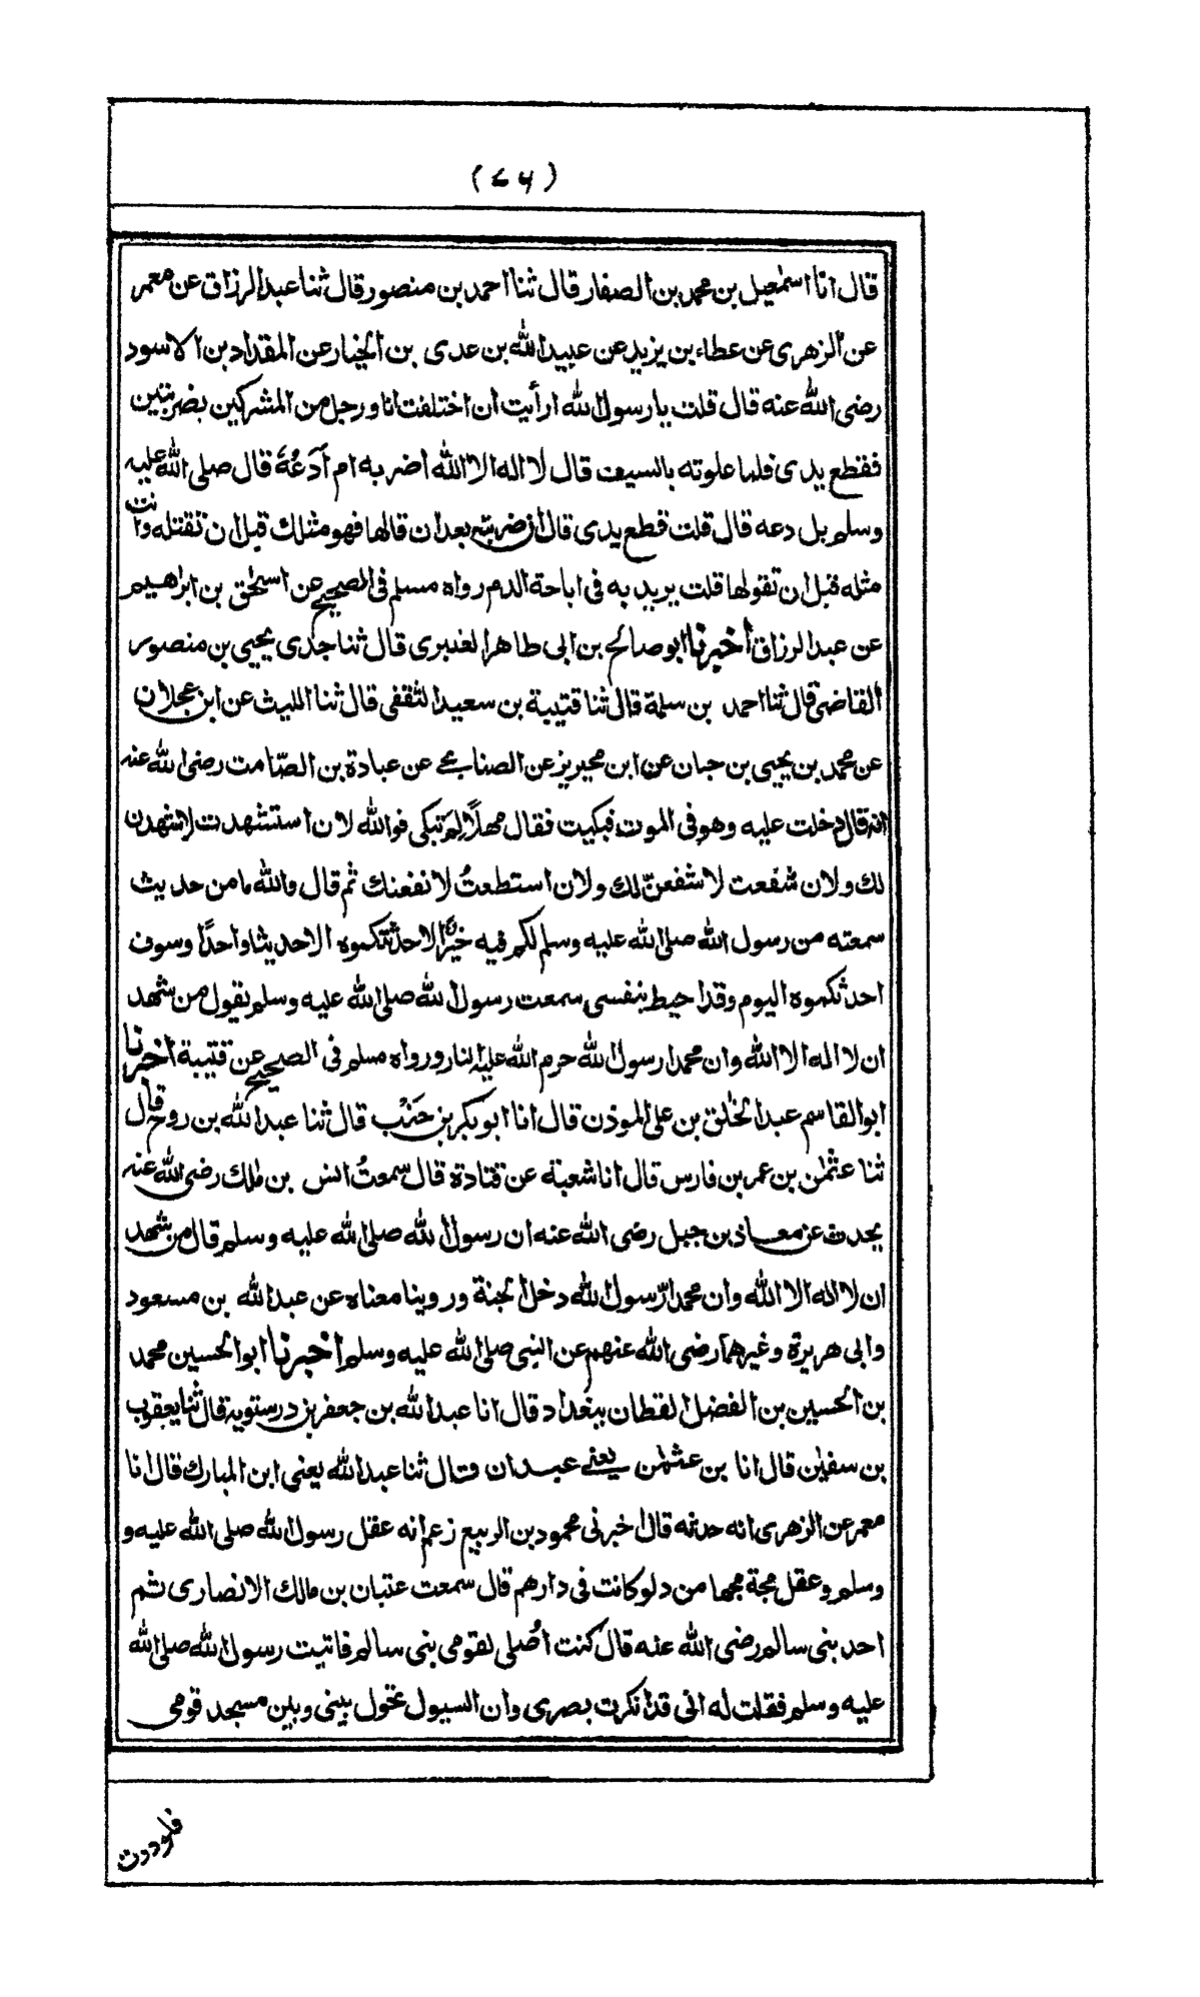 (۷۶)
قال انا اسمٰعيل بن محمد بن الصفار قال ثنا احمد بن منصور قال ثنا عبد الرزاق عن معمر
عن الزهرى عن عطاء بن يزيد عن عبيد الله بن عدى بن الخيار عن المقداد بن الاسود
رضى الله عنه قال قلت يا رسول الله ارأيت ان اختلفت انا ورجل من المشركين بضربتين
فقطع يدى فلما علوته بالسيف قال لا اله الا الله اضربه ام اَدَعُهُ قال صلى الله عليه
وسلم بل دعه قال قلت قطع يدى قال ان ضربته بعد ان قالها فهو مثلك قبل ان تقتله وانت
مثله قبل ان تقولها قلت يريد به فى اباحة الدم رواه مسلم فى الصحيح عن اسحٰق بن ابراهيم
عن عبد الرزاق اخبرنا ابو صالح بن ابى طاهر العنبرى قال ثنا جدى يحيى بن منصور
القاضى قال ثنا احمد بن سلمة قال ثنا قتيبة بن سعيد الثقفى قال ثنا الليث عن ابن عجلان
عن محمد بن يحيى بن حبان عن ابن محيريز عن الصنابحى عن عبادة بن الصّامت رضى الله عنه
انه قال دخلت عليه وهو فى الموت فبكيت فقال مهلًا لِمَ تبكى فوالله لان استشهدت لاشهدن
لك ولان شفعت لاشفعنّ لك ولان استطعتُ لانفعنك ثم قال والله ما من حديث
سمعته من رسول الله صلى الله عليه وسلم لكم فيه خيرًا الا حدثتكموه الا حديثا واحدًا وسوف
احدثكموه اليوم وقد احيط بنفسى سمعت رسول الله صلى الله عليه وسلم يقول من شهد
ان لا اله الا الله وان محمدا رسول الله حرم الله عليه النار ورواه مسلم فى الصحيح عن قتيبة اخبرنا
ابو القاسم عبد الخٰلق بن على الموذن قال انا ابو بكر بن خَنْب قال ثنا عبد الله بن روح قال
ثنا عثمٰن بن عمر بن فارس قال انا شعبة عن قتادة قال سمعتُ انس بن مٰلك رضى الله عنه
يحدث عن معاذ بن جبل رضى الله عنه ان رسول الله صلى الله عليه وسلم قال من شهد
ان لا اله الا الله وان محمدا رّسول الله دخل الجنة وروينا معناه عن عبد الله بن مسعود
وابى هريرة وغيرهما رضى الله عنهم عن النبى صلى الله عليه وسلم اخبرنا ابو الحسين محمد
بن الحسين بن الفضل القطان ببغداد قال انا عبد الله بن جعفر بن درستويه قال ثنا يعقوب
بن سفيٰن قال انا بن عثمٰن يعنى عبدان قال ثنا عبد الله يعنى ابن المبارك قال انا
معمر عن الزهرى انه حدثه قال اخبرنى محمود بن الربيع زعم انه عقل رسول الله صلى الله عليه و
وسلم وعقل مجة مجها من دلو كانت فى دارهم قال سمعت عتبان بن مالك الانصارى ثم
احد بنى سالم رضى الله عنه قال كنت اُصلى لقومى بنى سالم فاتيت رسول الله صلى الله
عليه وسلم فقلت له انى قد انكرت بصرى وان السيول تحول بينى وبين مسجد قومى
فلوددت